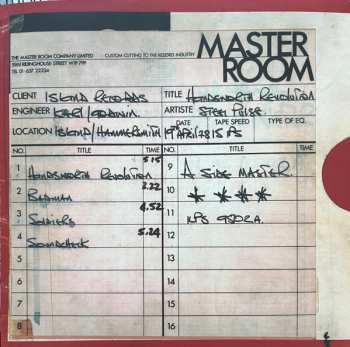 THE MASTER ROOM COMPANY LIMITED
CUSTOM CUTTING TO THE RECORD INDUSTRY
59/61 RIDINGHOUSE STREET W1P 7PP
TEL 01-637 2223/4
MASTER ROOM
CLIENT ISLAND RECORDS
TITLE HANDSWORTH REVOLUTION
ENGINEER KARL/GODWIN
ARTISTE STEEL PULSE
LOCATION ISLAND/HAMMERSMITH
DATE 19th APRIL 78
TAPE SPEED 15 IPS
TYPE OF EQ.
NO. TITLE TIME NO. TITLE TIME
1 HANDSWORTH REVOLUTION 5.15
2 BADMAN 3.22
3 SOLDIERS 4.52
4 SOUNDCHECK 5.24
5
6
7
8
9 A SIDE MASTER.
10 * * * *
11 ILPS 9502A.
12
13
14
15
16